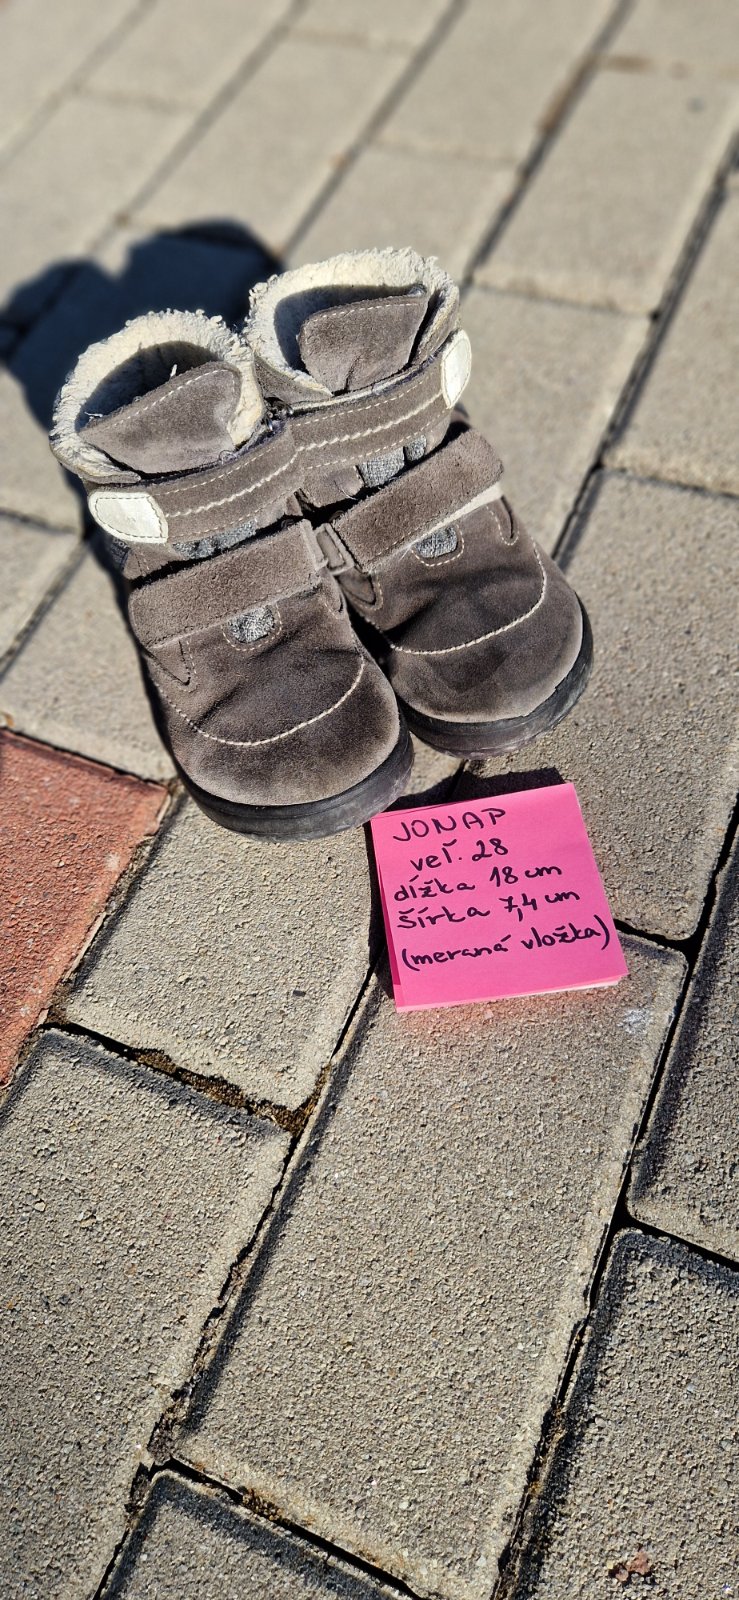 JONAP
veľ. 28
dĺžka 18 cm
šírka 7,4 cm
(meraná vložka)